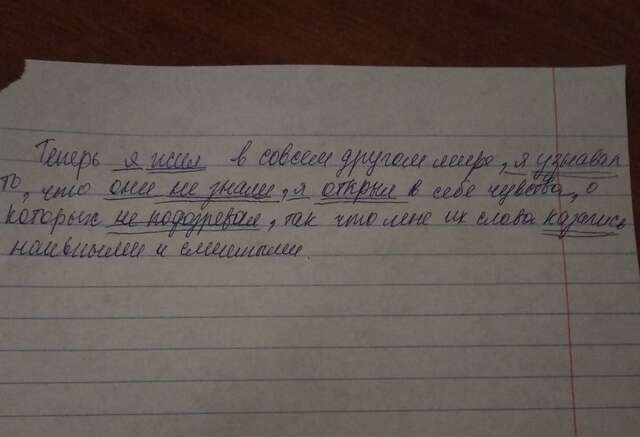 Теперь я жил в совсем другом мире, я узнавал
то, что они не знали, я открыл в себе чувства, о
которых не подозревал, так что мне их слова казались
наивными и смешными.